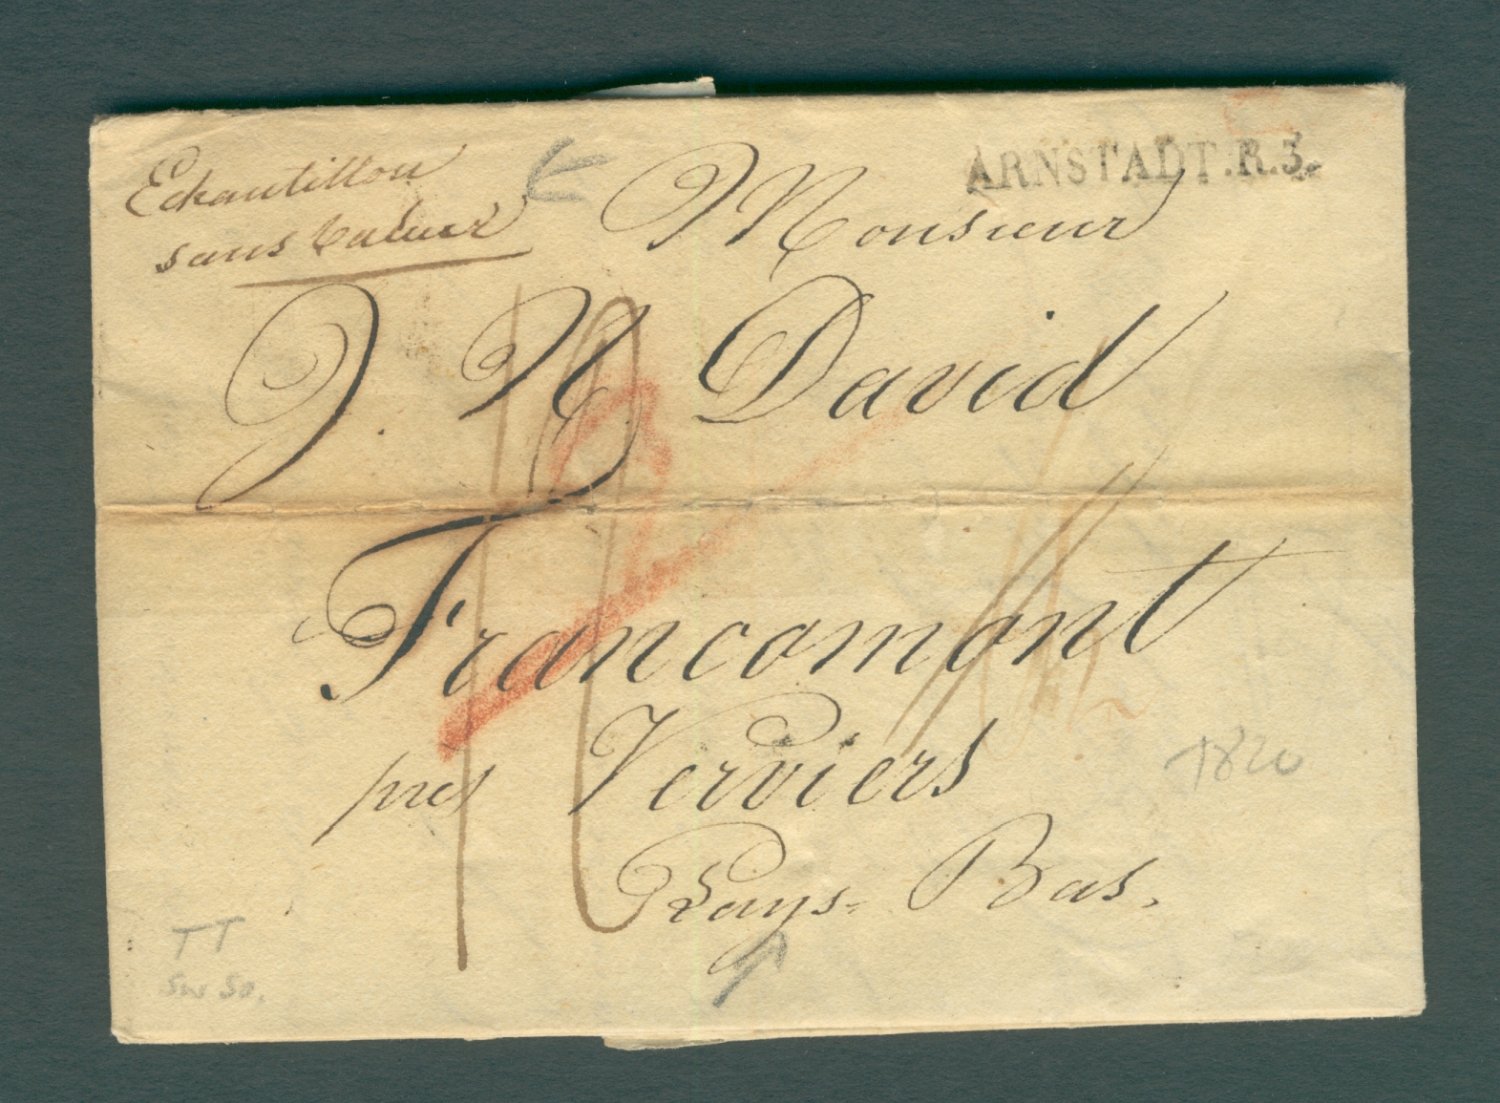 Echantillon
sans valeur
ARNSTADT.R.3.
Monsieur
J. N David
Francomont
pres Verviers
Pays-Bas.
1820
TT